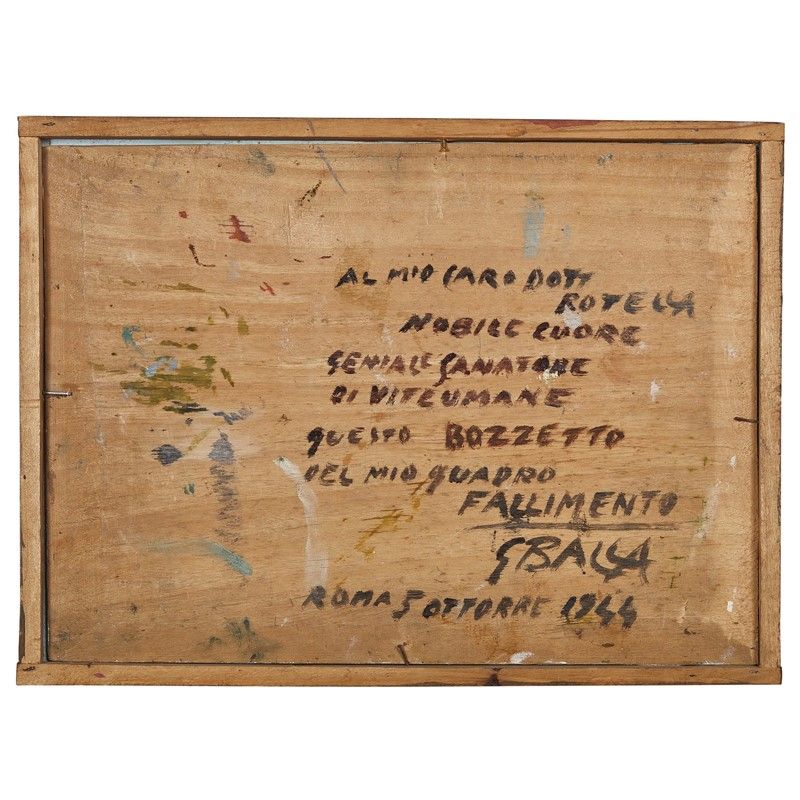 AL MIO CARO DOTT
ROTELLA
NOBILE CUORE
GENIALE SANATORE
DI VITE UMANE
QUESTO BOZZETTO
DEL MIO QUADRO
FALLIMENTO
G BALLA
ROMA 5 OTTOBRE 1944